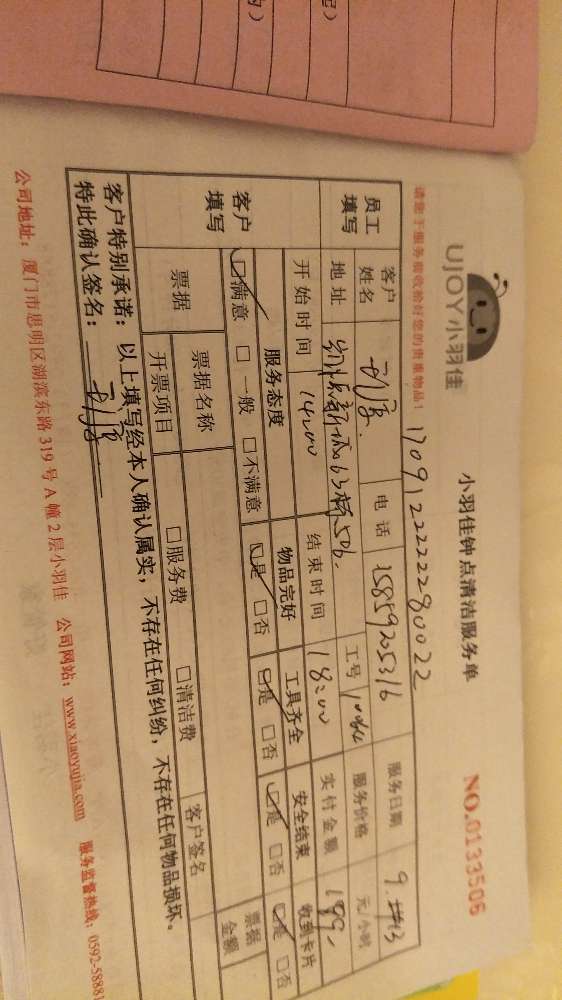 UJOY小羽佳
小羽佳钟点清洁服务单
NO.0133506
请您于服务前收拾好您的贵重物品!
17091222222280022
员工填写
客户姓名
电话 15859205316
服务日期 9.
地址
63栋506.
工号
服务价格 元/小时
开始时间 14:00
结束时间 18:00
实付金额 199-
客户填写
服务态度
物品完好
工具齐全
安全结束
收到卡片
☑满意 □一般 □不满意
☑是 □否
☑是 □否
☑是 □否
☑是 □否
票据
票据名称
客户签名
票据金额
开票项目
□服务费 □清洁费
客户特别承诺:以上填写经本人确认属实,不存在任何纠纷,不存在任何物品损坏。
特此确认签名:
公司地址:厦门市思明区湖滨东路319号A幢2层小羽佳 公司网站:www.xiaoyujia.com 服务监督热线:0592-58881